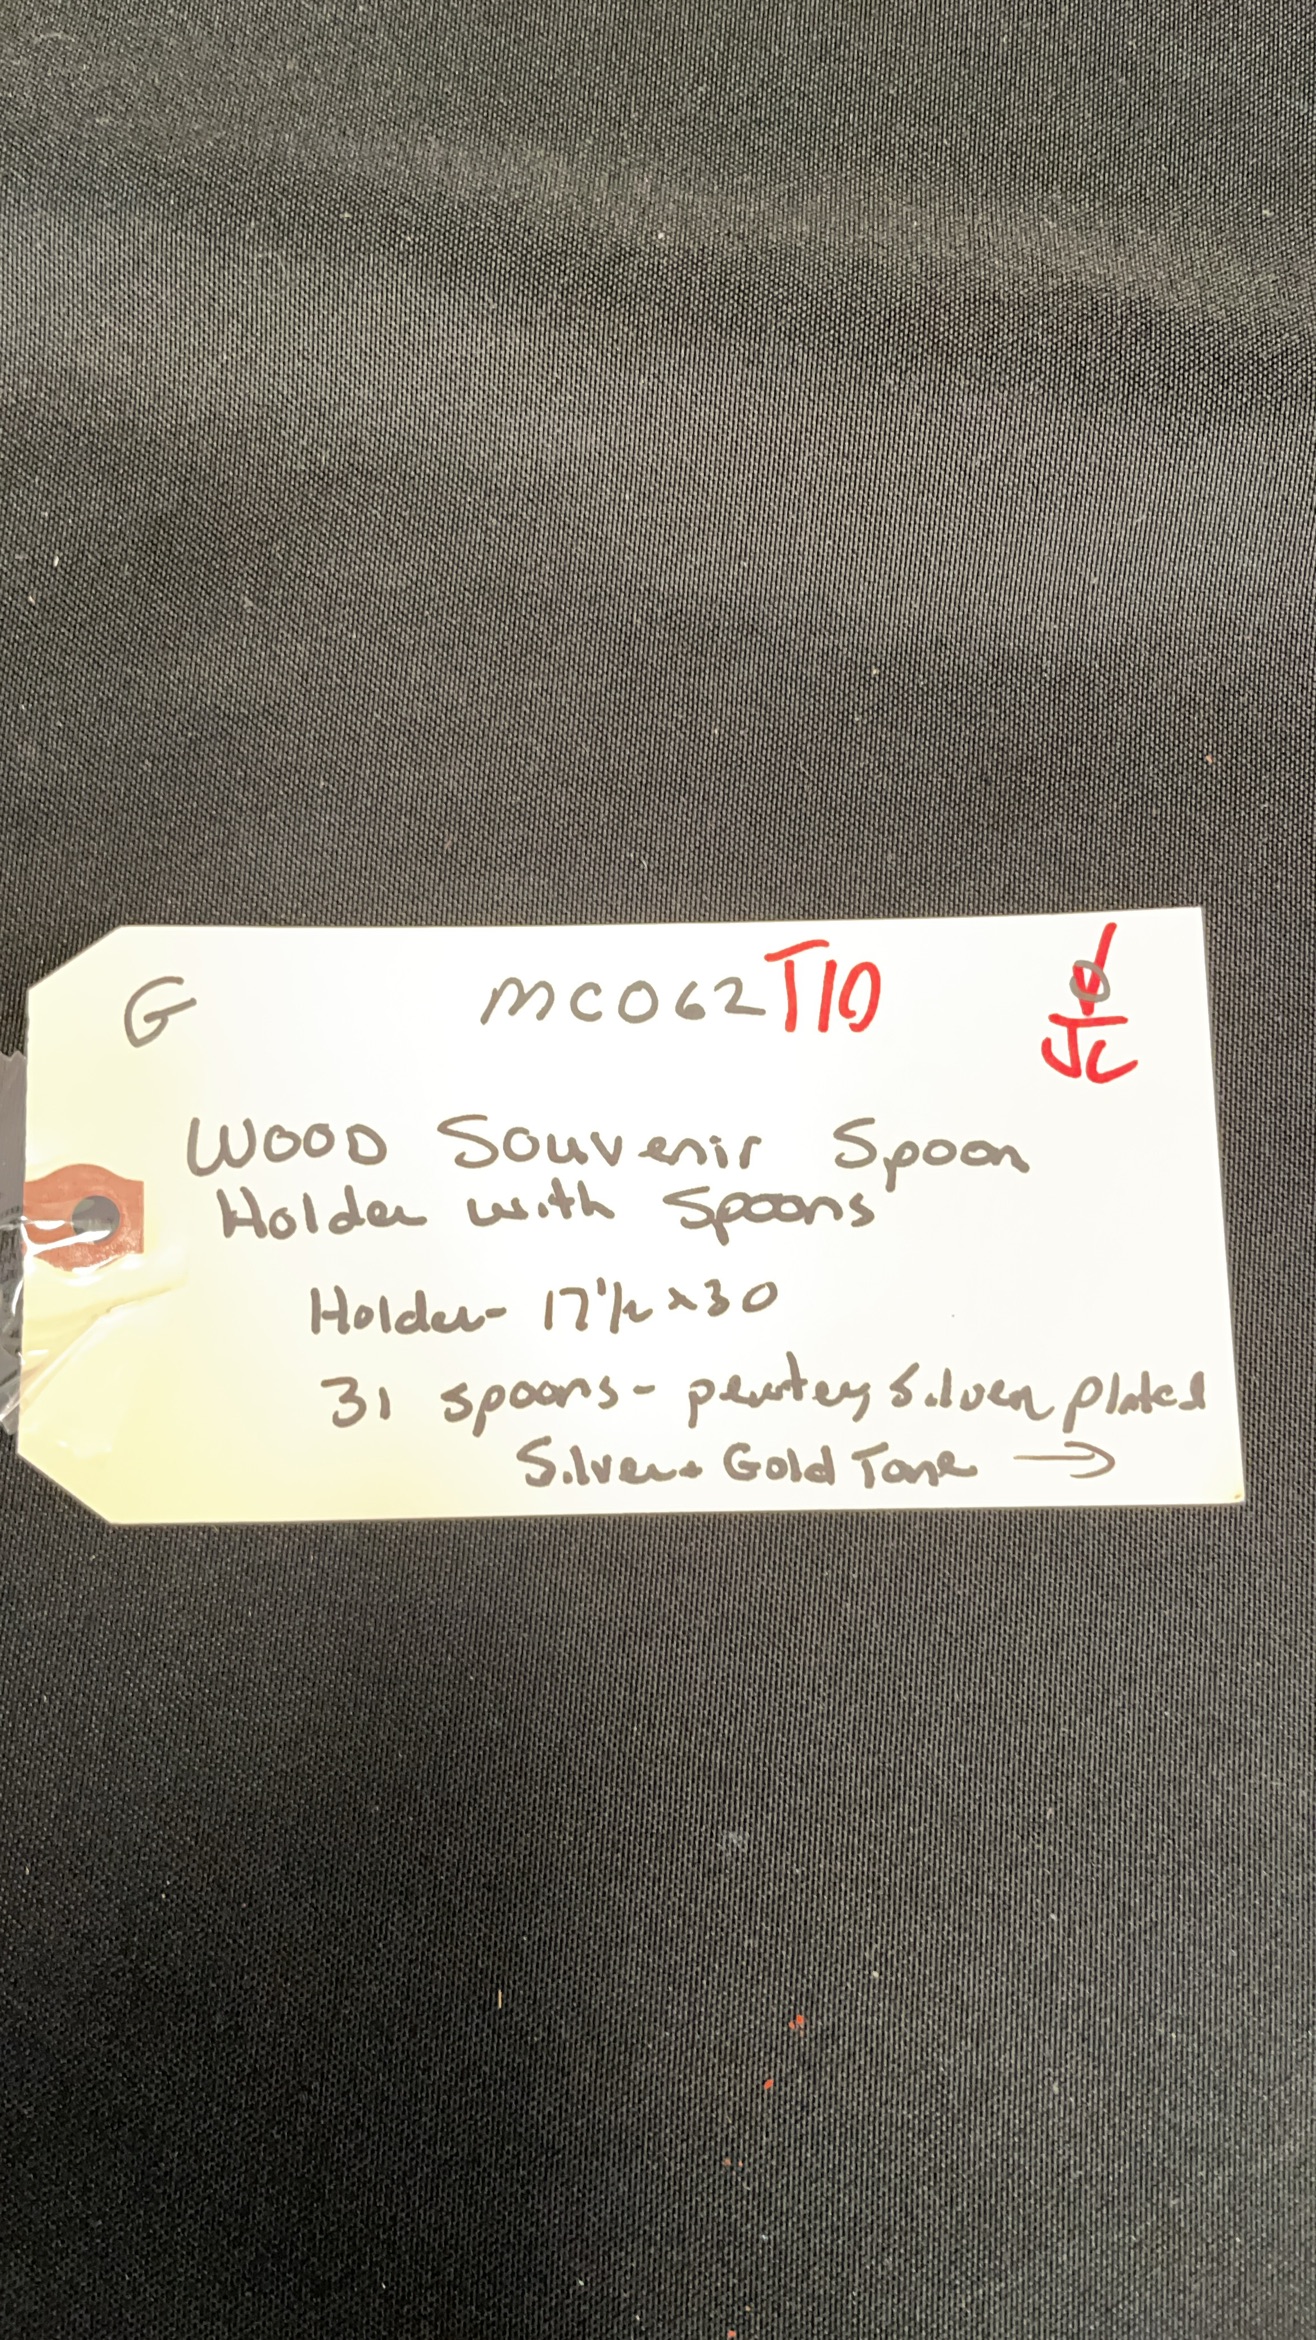 G MC062 T10
JC
WOOD Souvenir Spoon
Holder with Spoons
Holder- 17 1/2 x 30
31 spoons- pewter, Silver plated
Silver + Gold Tone →